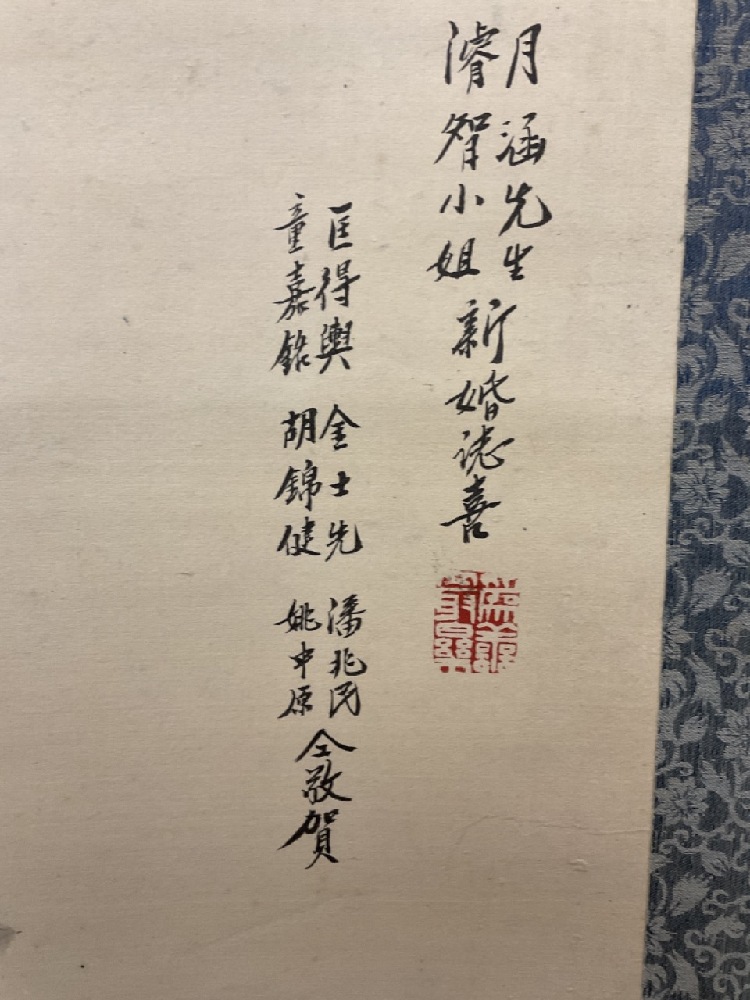 月涵先生
濬智小姐
新婚誌喜
匡得輿 金士先 潘兆民
童嘉銘 胡錦健 姚中原
仝敬賀